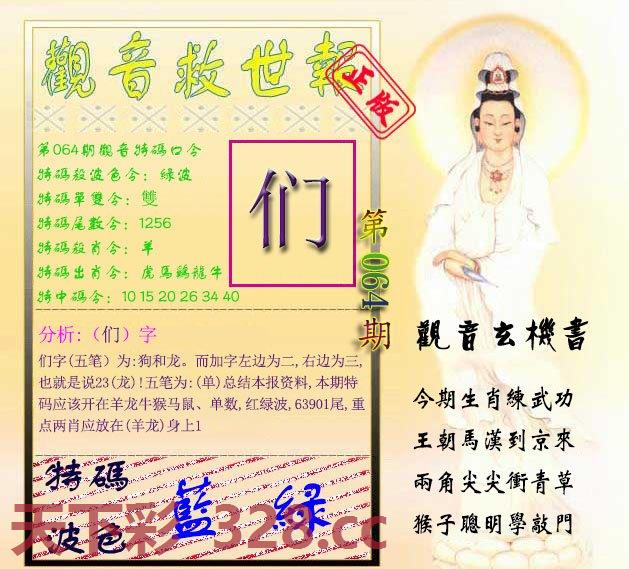 觀音救世報
正版
第064期觀音特碼口令
特碼殺波色令：綠波
特碼單雙令：雙
特碼尾數令：1256
特碼殺肖令：羊
特碼出肖令：虎馬鷄龍牛
特中碼令：10 15 20 26 34 40
们
第064期
分析:（们）字
们字(五笔）为:狗和龙。而加字左边为二,右边为三,
也就是说23(龙)!五笔为:(单)总结本报资料,本期特
码应该开在羊龙牛猴马鼠、单数,红绿波,63901尾,重
点两肖应放在(羊龙)身上1
特碼
波色
藍 綠
天下彩 328.cc
觀音玄機書
今期生肖練武功
王朝馬漢到京來
兩角尖尖衝青草
猴子聰明學敲門